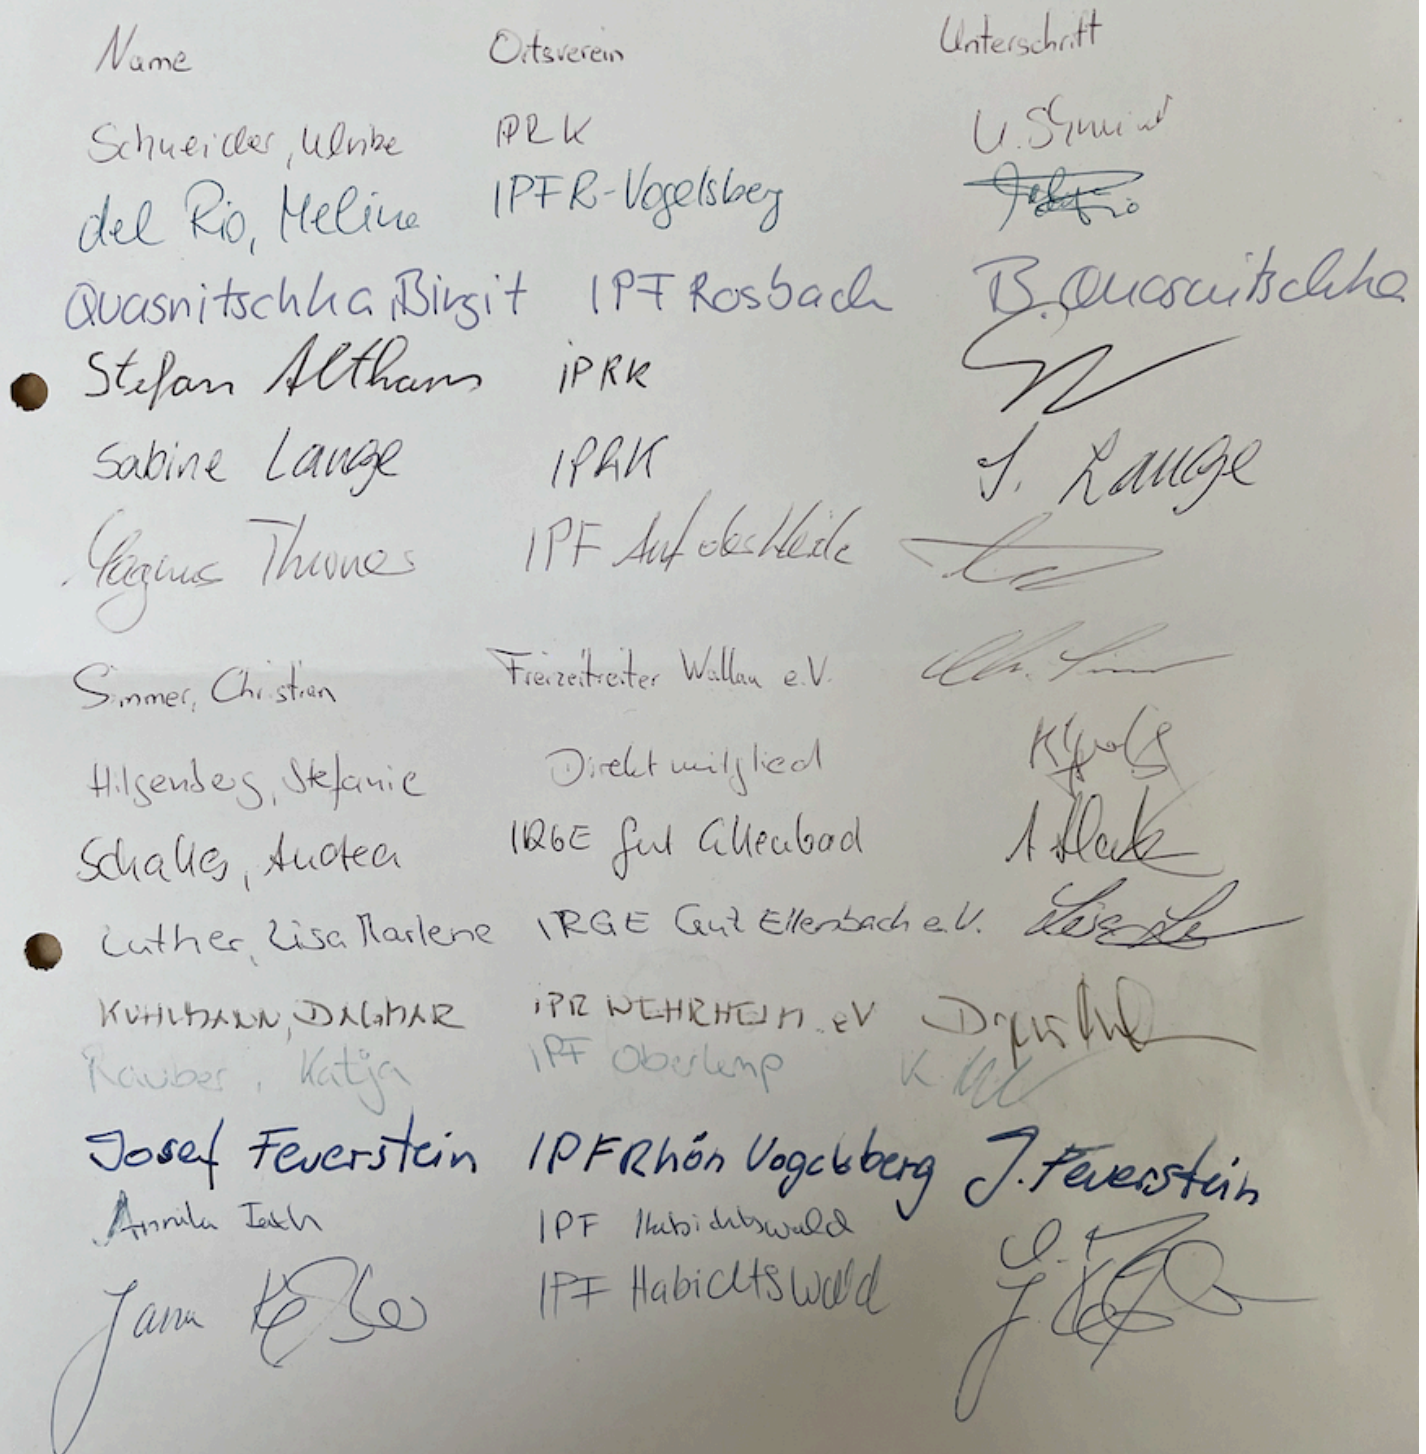 Name Ortsverein Unterschrift
Schneider, Ulrike IPRK
del Rio, Melina IPFR-Vogelsberg
Quasnitschka, Birgit IPF Rosbach B. Quasnitschka
Stefan Althans IPRK
Sabine Lange IPRK S. Lange
Magnus IPF Auf der Heide
Simmer, Christian Freizeitreiter Wallau e.V.
Hilgenberg, Stefanie Direktmitglied
Andrea IRGE Gut
Luther, Lisa Marlene IRGE Gut Ellenbach e.V.
KUHLMANN, DAGMAR IPR WEHRHEIM eV
Rauber, Katja IPF Oberlemp K.
Josef Feuerstein IPF Rhön Vogelsberg J. Feuerstein
Annika IPF Habichtswald
Jana IPF Habichtswald J.